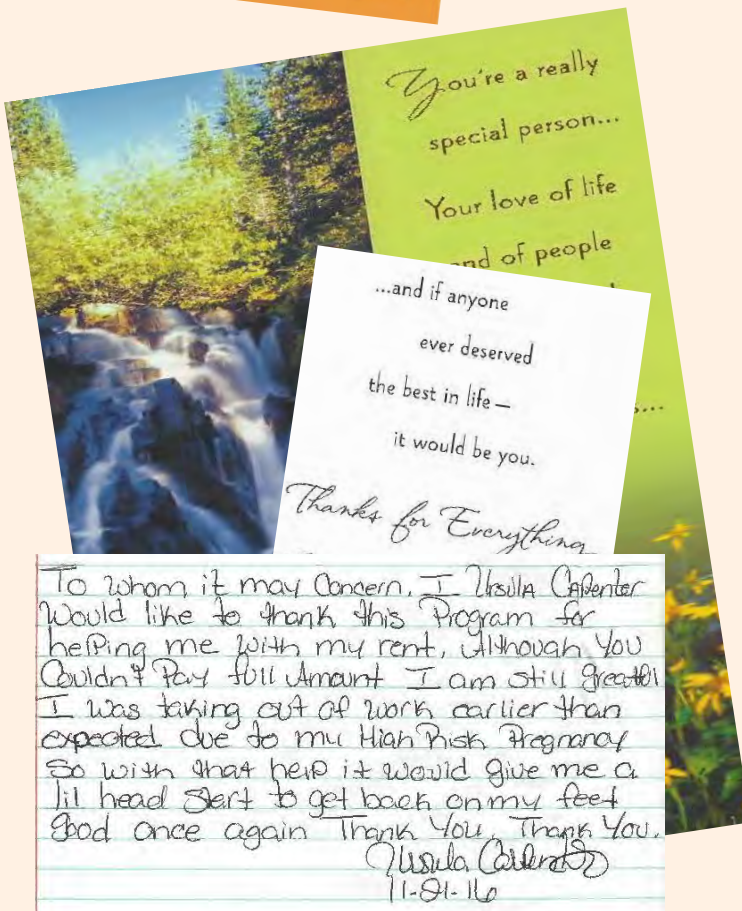 You're a really
special person...
Your love of life
and of people
...and if anyone
ever deserved
the best in life—
it would be you.
Thanks for Everything
To whom it may Concern, I Ursula Carpenter
Would like to thank this Program for
helping me with my rent, Although You
Couldn't Pay full Amount I am still
I was taking out of work earlier than
expected due to my High Risk Pregnancy
So with that help it would give me a
lil head Start to get back on my feet
good once again Thank You, Thank You.
Ursula Carpenter
11-21-16